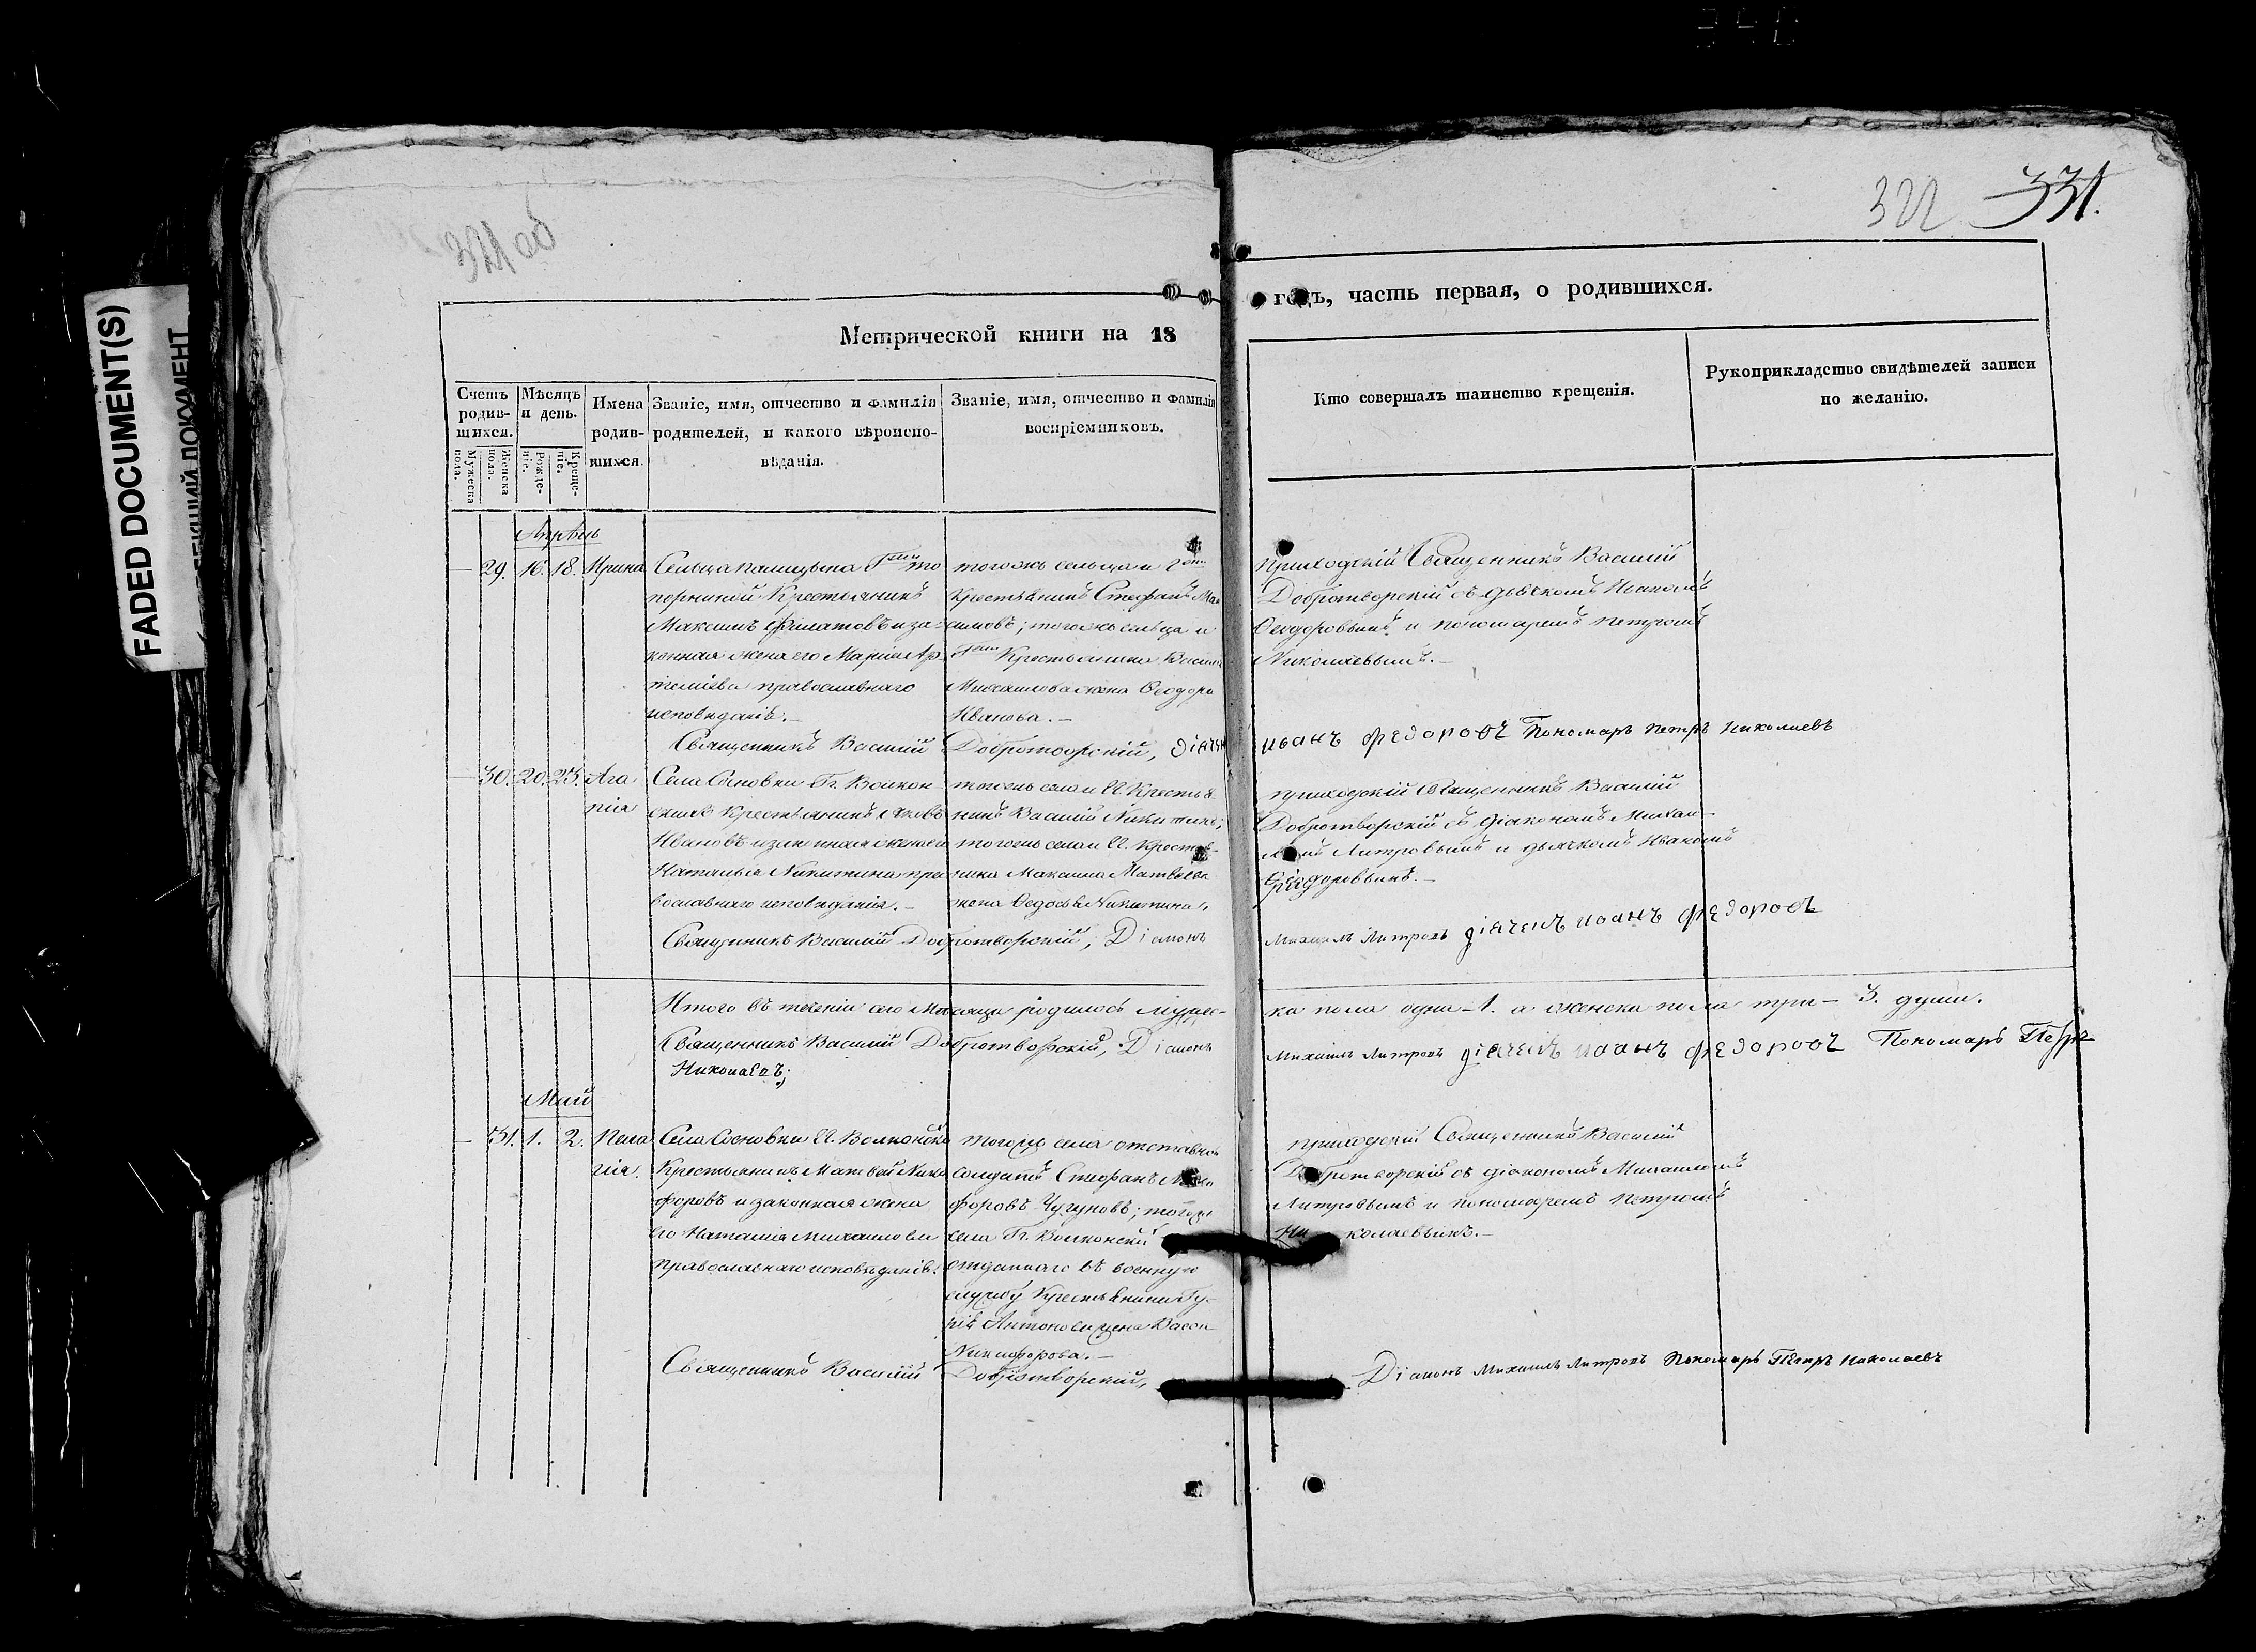 FADED DOCUMENT(S)
321 об
322 331.
Метрической книги на 18
годъ, часть первая, о родившихся.
Счетъ родив-шихся.
Мужеска пола.
Женска пола.
Мѣсяцъ и день.
Рожде-ніе.
Креще-ніе.
Имена родив-шихся.
Званіе, имя, отчество и фамилія родителей, и какого вѣроиспо-вѣданія.
Званіе, имя, отчество и фамилія воспріемниковъ.
Кто совершалъ таинство крещенія.
Рукоприкладство свидѣтелей записи по желанію.
Апрѣль
29. 16. 18. Ирина
Крестьянинъ
Максимъ Филатовъ и за-
конная жена его Марія Ар-
темiева православнаго
исповѣданія.
тогожъ сельца и
Крестьянинъ Стефанъ Мак
симовъ; тогожъ сельца и
Крестьянина
Михаилова жена Феодора
Иванова. —
Приходскій Священникъ Василій
Добротворскій съ дьячкомъ Иваномъ
Феодоровымъ и пономаремъ Петромъ
Николаевымъ. —
Священникъ Василій Добротворскій, діачекъ иванъ федоровъ Пономарь Петръ Николаевъ
30. 20. 23. Ага
пія
Села Сосновки Гг. Волкон-
скихъ Крестьянинъ Яковъ
Ивановъ и законная жена его
Наталья Никитина пра
вославнаго исповѣданія. —
тогожъ села и Крестья
нинъ Василій Никитинъ;
тогожъ села и Крестья-
нина Максима Матвѣева
жена Федосья Никитина.
приходскій Священникъ Василій
Добротворскій съ діакономъ Михаи-
ломъ Митровымъ и дьячкомъ Иваномъ
Феодоровымъ. —
Священникъ Василій Добротворскій, Діаконъ Михаилъ Митровъ діачекъ иоанъ федоровъ
Итого въ теченіи сего Мѣсяца родилось мужес-ка пола одна — 1. а женска пола три — 3. души.
Священникъ Василій Добротворскій, Діаконъ Михаилъ Митровъ діачекъ иоанъ федоровъ Пономарь Петръ
Николаевъ;
Май
31. 1. 2. Пела
гія.
Села Сосновки
Крестьянинъ Матвей Ники
форовъ и законная жена
его Наталія Михаилова
православнаго исповѣданія.
тогожъ села отставной
солдатъ Стефанъ Ники
форовъ Чугуновъ; тогожъ
села Гг. Волконскихъ
отданнаго въ военную
службу Крестьянина Гу-
рія Антонова жена Васса
Никифорова. —
приходскій Священникъ Василій
Добротворскій съ діакономъ Михаиломъ
Митровымъ и пономаремъ Петромъ
Николаевымъ. —
Священникъ Василій Добротворскій, Діаконъ Михаилъ Митровъ Пономарь Петръ Николаевъ